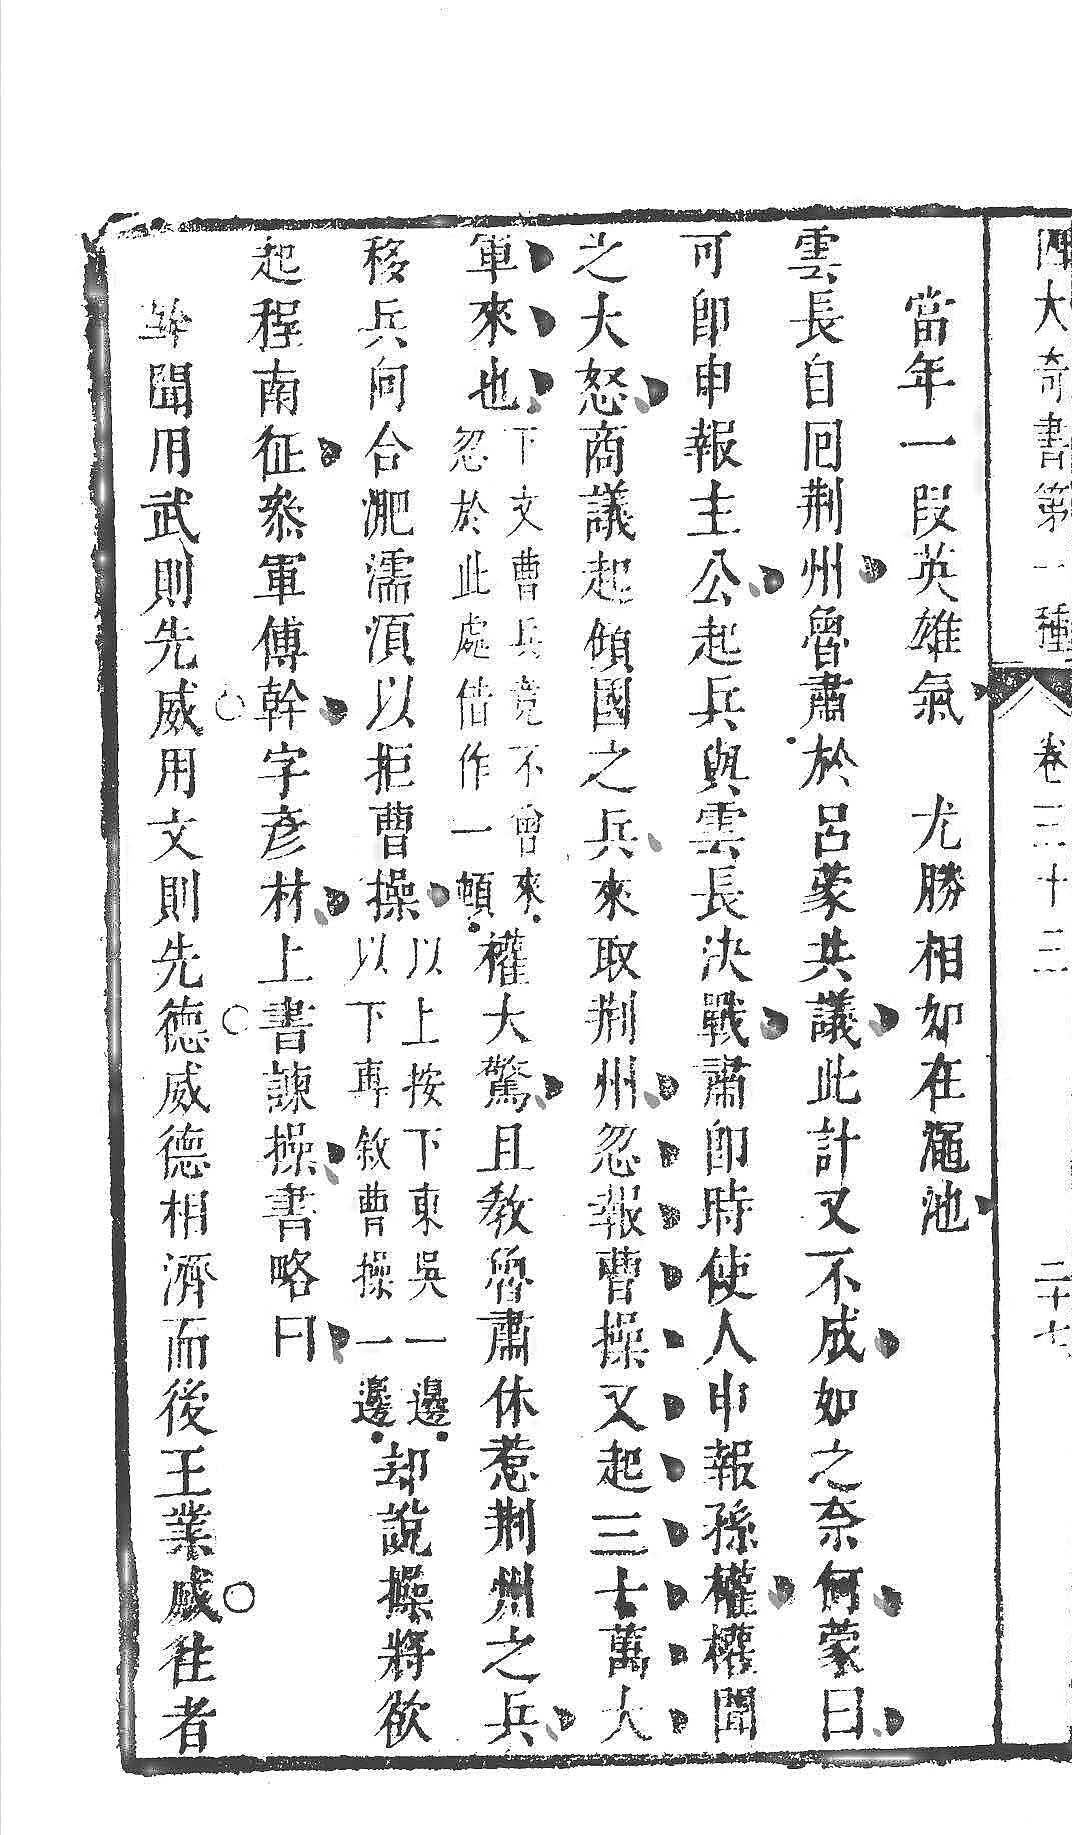 四大奇書第一種 卷三十三 二十七
當年一段英雄氣 尤勝相如在澠池
雲長自囘荆州魯肅於呂蒙共議此計又不成如之奈何蒙曰
可卽申報主公起兵與雲長決戰肅卽時使人申報孫權權聞
之大怒商議起傾國之兵來取荆州忽報曹操又起三十萬大
軍來也下文曹兵竟不曾來忽於此處借作一頓權大驚且教魯肅休惹荆州之兵
移兵向合淝濡須以拒曹操以上按下東吳一邊以下再敘曹操一邊却說操將欲
起程南征叅軍傅幹字彥材上書諫操書略曰
幹聞用武則先威用文則先德威德相濟而後王業成往者